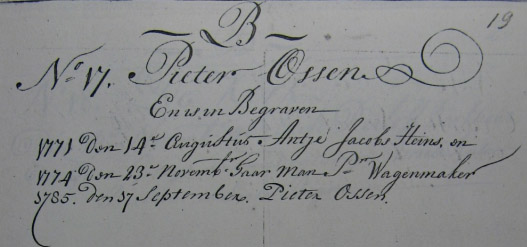 B
19
No. 17. Pieter Ossen
En is in Begraven
1771 den 14e. Augustus. Antje Jacobs Heins. en
1774 den 23e. Novembr. Haar Man Pr. Wagenmaker
1785. den 17 September. Pieter Ossen.